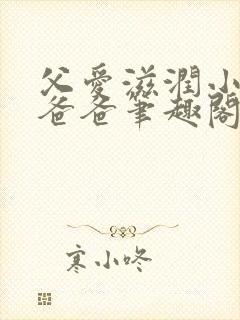 父愛滋潤小
爸爸筆趣閣
寒小咚